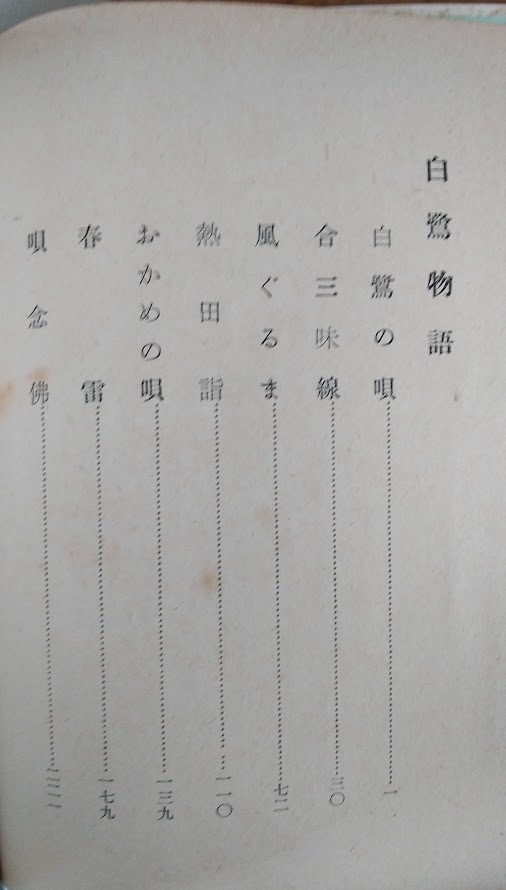 白鷺物語
白鷺の唄……一
合三味線……三〇
風ぐるま……七二
熱田詣……一一〇
おかめの唄……一三九
春雷……一七九
唄念佛……